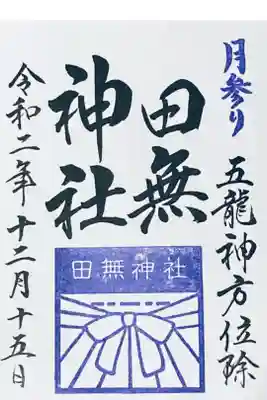 月参り
五龍神方位除
田無
神社
田無神社
令和二年十二月十五日